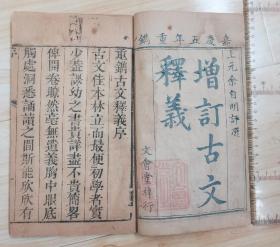 嘉慶五年重鐫
上元余自明評選
增訂古文
釋義
文會堂梓行
重鐫古文釋義序
古文佳本林立而最便初學者實
少蓋課幼之書貴詳盡不貴簡畧
俾開卷瞭然毫無遺義胸中眼底
觸處洞悉誦讀之間斯能欣欣有